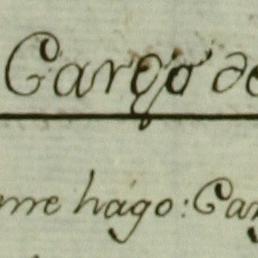 Cargo de
me hago: Car